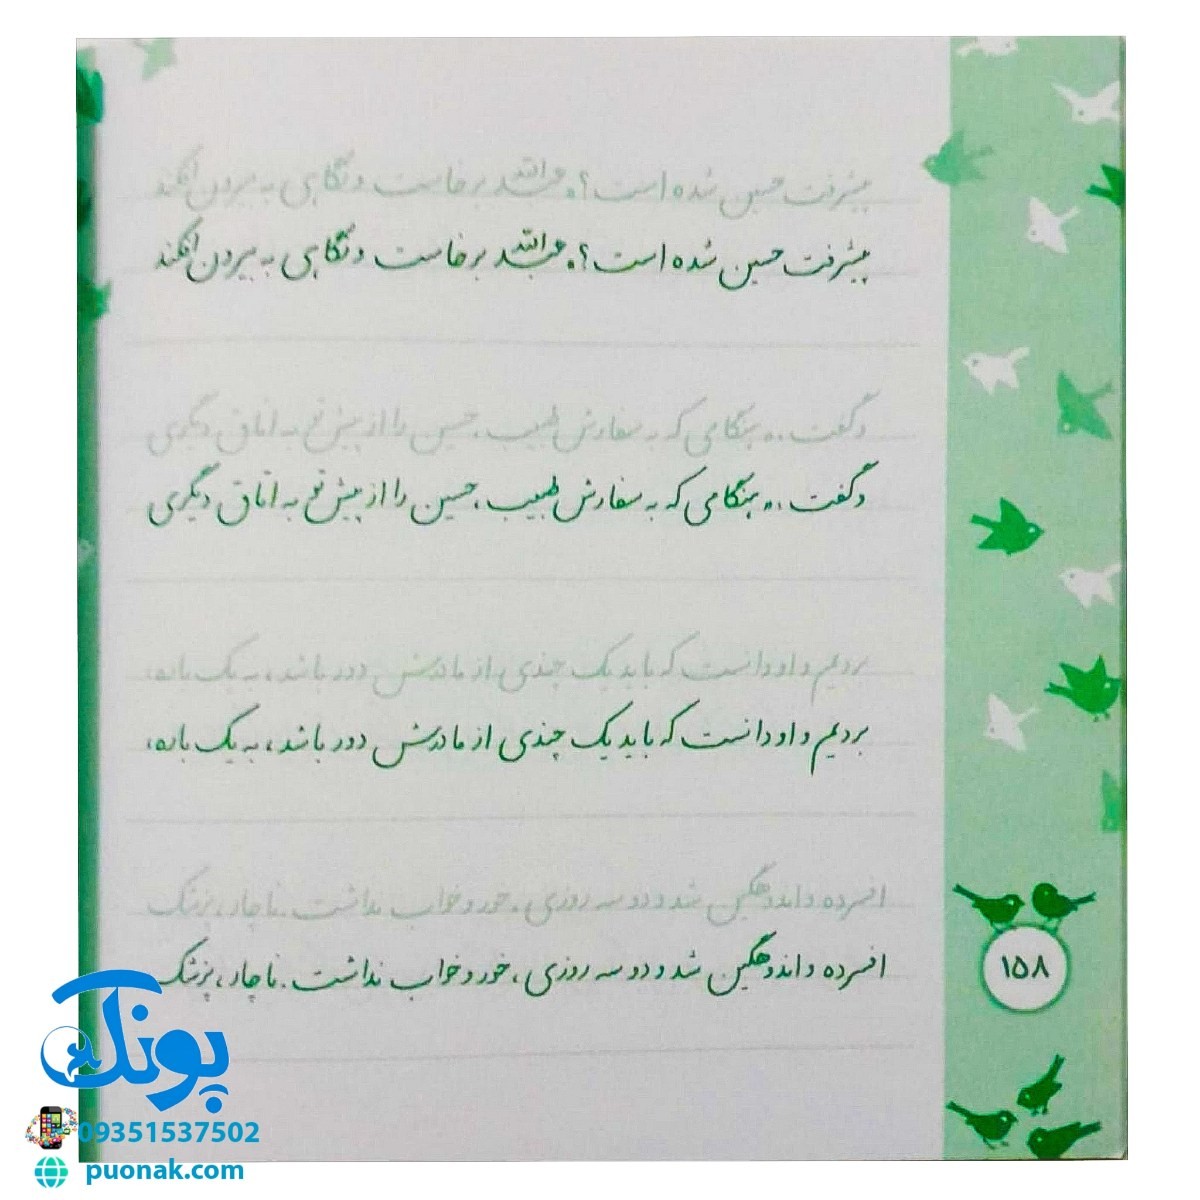 پیشرفت حسین شده است؟» عبدالله برخاست و نگاهی به بیرون افکند
پیشرفت حسین شده است؟» عبدالله برخاست و نگاهی به بیرون افکند
و گفت: «هنگامی که به سفارش طبیب، حسین را از پیش تو به اتاق دیگری
و گفت: «هنگامی که به سفارش طبیب، حسین را از پیش تو به اتاق دیگری
بردیم و او دانست که باید یک چندی از مادرش دور باشد، به یک باره،
بردیم و او دانست که باید یک چندی از مادرش دور باشد، به یک باره،
افسرده و اندوهگین شد و دو سه روزی، خور و خواب نداشت. ناچار، پزشک
افسرده و اندوهگین شد و دو سه روزی، خور و خواب نداشت. ناچار، پزشک
۱۵۸
پونک
09351537502
puonak.com